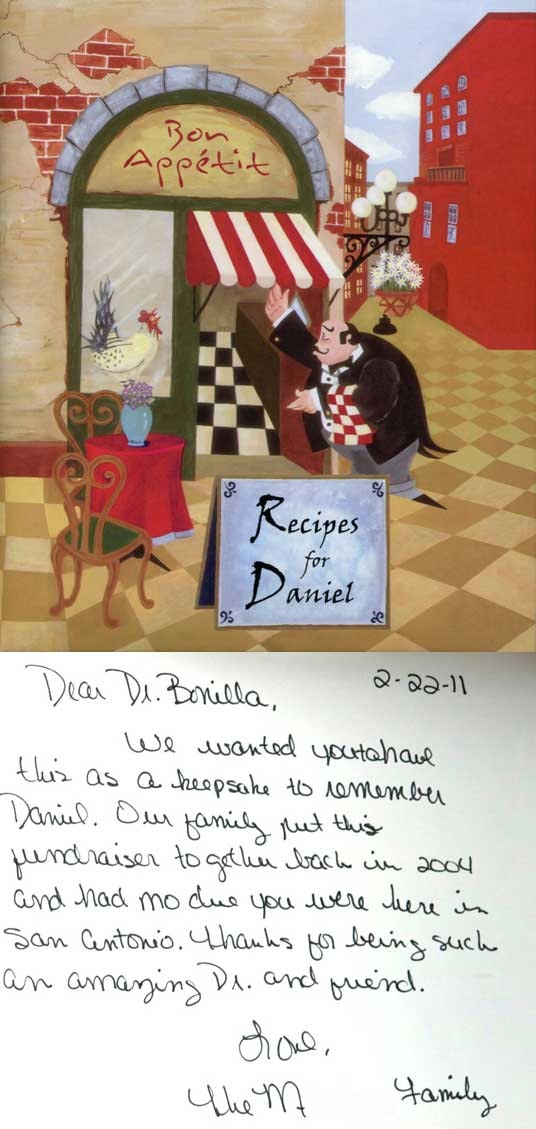 Bon
Appétit
Recipes
for
Daniel
Dear Dr. Bonilla, 2-22-11
We wanted you to have
this as a keepsake to remember
Daniel. Our family put this
fundraiser together back in 2004
and had no clue you were here in
San Antonio. Thanks for being such
an amazing Dr. and friend.
Love,
The M Family